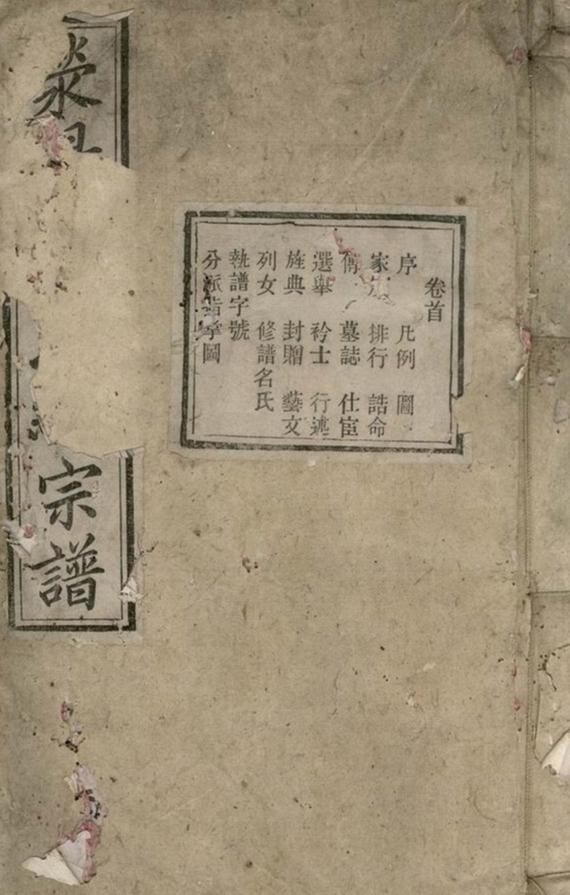 卷首
序 凡例 圖
家 排行 誥命
傳 墓誌 仕宦
選舉 衿士 行述
旌典 封贈 藝文
列女 修譜名氏
執譜字號
分派指掌圖
滎 宗譜